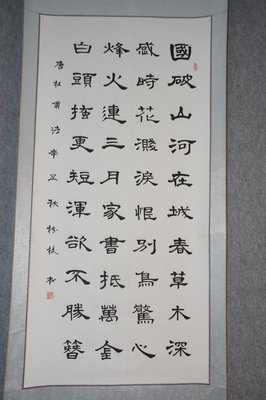 國破山河在城春草木深
感時花濺淚恨別鳥驚心
烽火連三月家書抵萬金
白頭搔更短渾欲不勝簪
唐杜甫詩辛丑秋